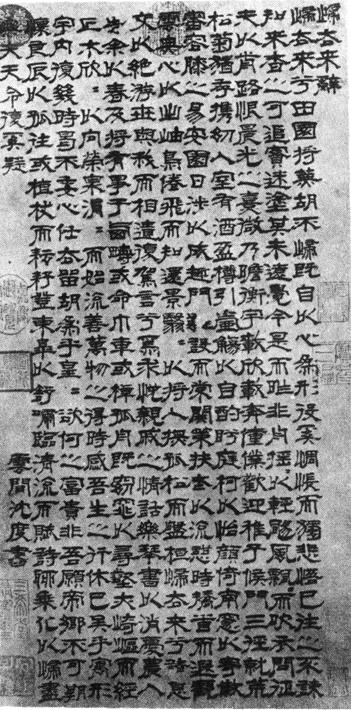 歸去來辭
歸去來兮田園將蕪胡不歸既自以心為形役奚惆悵而獨悲悟已往之不諫
知來者之可追實迷塗其未遠覺今是而昨非舟搖〻以輕颺風飄〻而吹衣問征
夫以前路恨晨光之熹微乃瞻衡宇載欣載奔僮僕歡迎稚子候門三徑就荒
松菊猶存攜幼入室有酒盈樽引壺觴以自酌眄庭柯以怡顏倚南窗以寄傲
審容膝之易安園日涉以成趣門雖設而常關策扶老以流憩時矯首而遐觀
雲無心以出岫鳥倦飛而知還景翳〻以將入撫孤松而盤桓歸去來兮請息
交以絕游世與我而相遺復駕言兮焉求悅親戚之情話樂琴書以消憂農人
告余以春及將有事于西疇或命巾車或棹孤舟既窈窕以尋壑亦崎嶇而經
丘木欣〻以向榮泉涓〻而始流善萬物之得時感吾生之行休已矣乎寓形
宇內復幾時曷不委心任去留胡為乎皇〻欲何之富貴非吾願帝鄉不可期
懷良辰以孤往或植杖而耘耔登東皋以舒嘯臨清流而賦詩聊乘化以歸盡
樂夫天命復奚疑
雲間沈度書